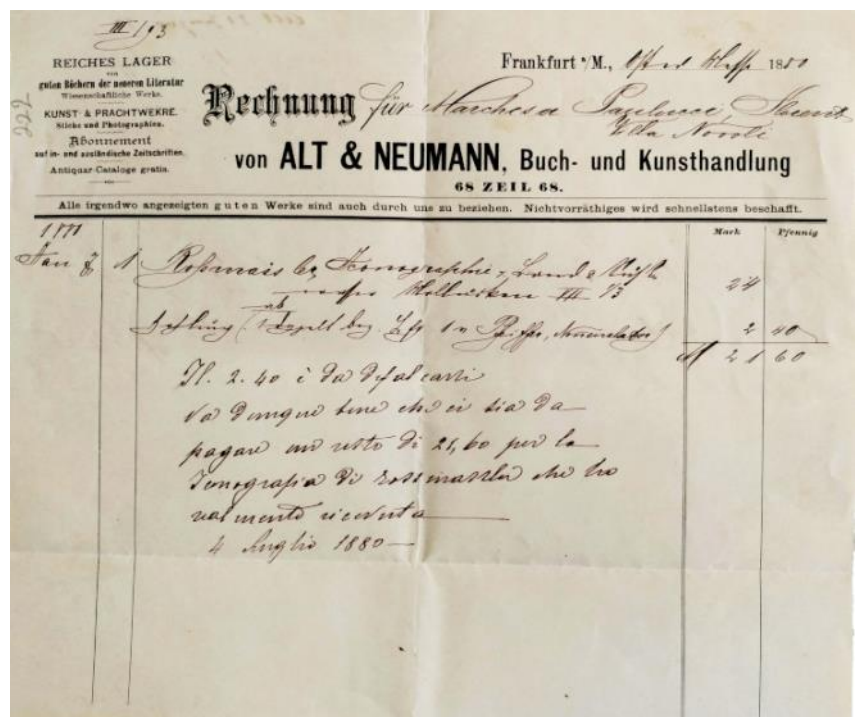 III 193
222
REICHES LAGER
von
guten Büchern der neueren Literatur
Wissenschaftliche Werke.
KUNST- & PRACHTWEKRE.
Stiche und Photographien.
Abonnement
auf in- und ausländische Zeitschriften.
Antiquar-Cataloge gratis.
Frankfurt a/M., 1880
Rechnung für Marchesa Paulucci,
Villa Novoli
von ALT & NEUMANN, Buch- und Kunsthandlung
68 ZEIL 68.
Alle irgendwo angezeigten guten Werke sind auch durch uns zu beziehen. Nichtvorräthiges wird schnellstens beschafft.
Mark Pfennig
Jan 1 Iconographie Land &
24
ab
2 40
M 21 60
Il. 2.40 è da difalcarsi
va dunque bene che ci sia da
pagare un resto di 21,60 per la
Iconografia di Rossmassler che ho
realmente ricevuta
4 Luglio 1880